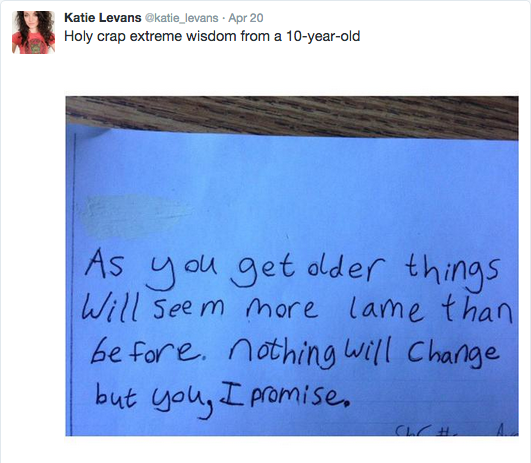 Katie Levans @katie_levans · Apr 20
Holy crap extreme wisdom from a 10-year-old
As you get older things
Will seem more lame than
before. nothing will Change
but you, I promise.